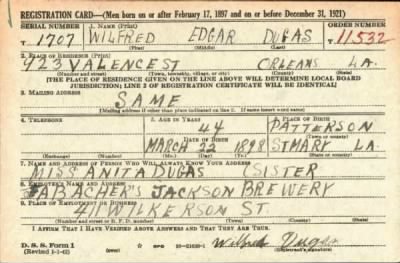 REGISTRATION CARD—(Men born on or after February 17, 1897 and on or before December 31, 1921)
SERIAL NUMBER 1. NAME (Print) ORDER NUMBER
T 1707 WILFRED EDGAR DUGAS T 11532
(First) (Middle) (Last)
2. PLACE OF RESIDENCE (Print)
423 VALENCE ST ORLEANS LA.
(Number and street) (Town, township, village, or city) (County) (State)
[THE PLACE OF RESIDENCE GIVEN ON THE LINE ABOVE WILL DETERMINE LOCAL BOARD
JURISDICTION; LINE 2 OF REGISTRATION CERTIFICATE WILL BE IDENTICAL]
3. MAILING ADDRESS
SAME
[Mailing address if other than place indicated on line 2. If same insert word same]
4. TELEPHONE 5. AGE IN YEARS 6. PLACE OF BIRTH
44 PATTERSON
DATE OF BIRTH (Town or county)
MARCH 22 1898 ST MARY LA
(Exchange) (Number) (Mo.) (Day) (Yr.) (State or country)
7. NAME AND ADDRESS OF PERSON WHO WILL ALWAYS KNOW YOUR ADDRESS
MISS ANITA DUGAS SISTER
8. EMPLOYER'S NAME AND ADDRESS
JACKSON BREWERY
9. PLACE OF EMPLOYMENT OR BUSINESS
41 WILKERSON ST.
(Number and street or R. F. D. number) (Town) (County) (State)
I AFFIRM THAT I HAVE VERIFIED ABOVE ANSWERS AND THAT THEY ARE TRUE.
D. S. S. Form 1
(Revised 1-1-42) Wilfred Dugas
(Registrant's signature)